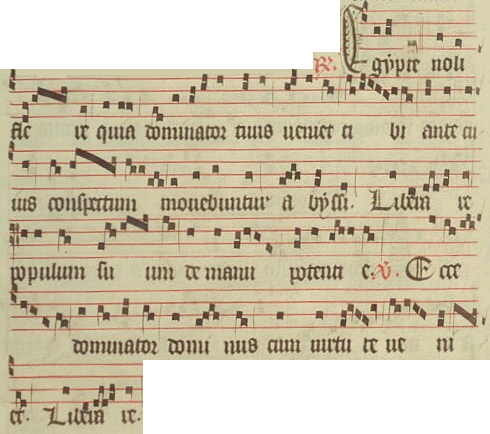 R. Egypte noli
fle re quia dominator tuus ueniet ti bi ante cu
ius conspectum mouebuntur a byssi. Libera re
populum su um de manu potenti e. V. Ecce
dominator domi nus cum uirtu te ue ni
et. Libera re.